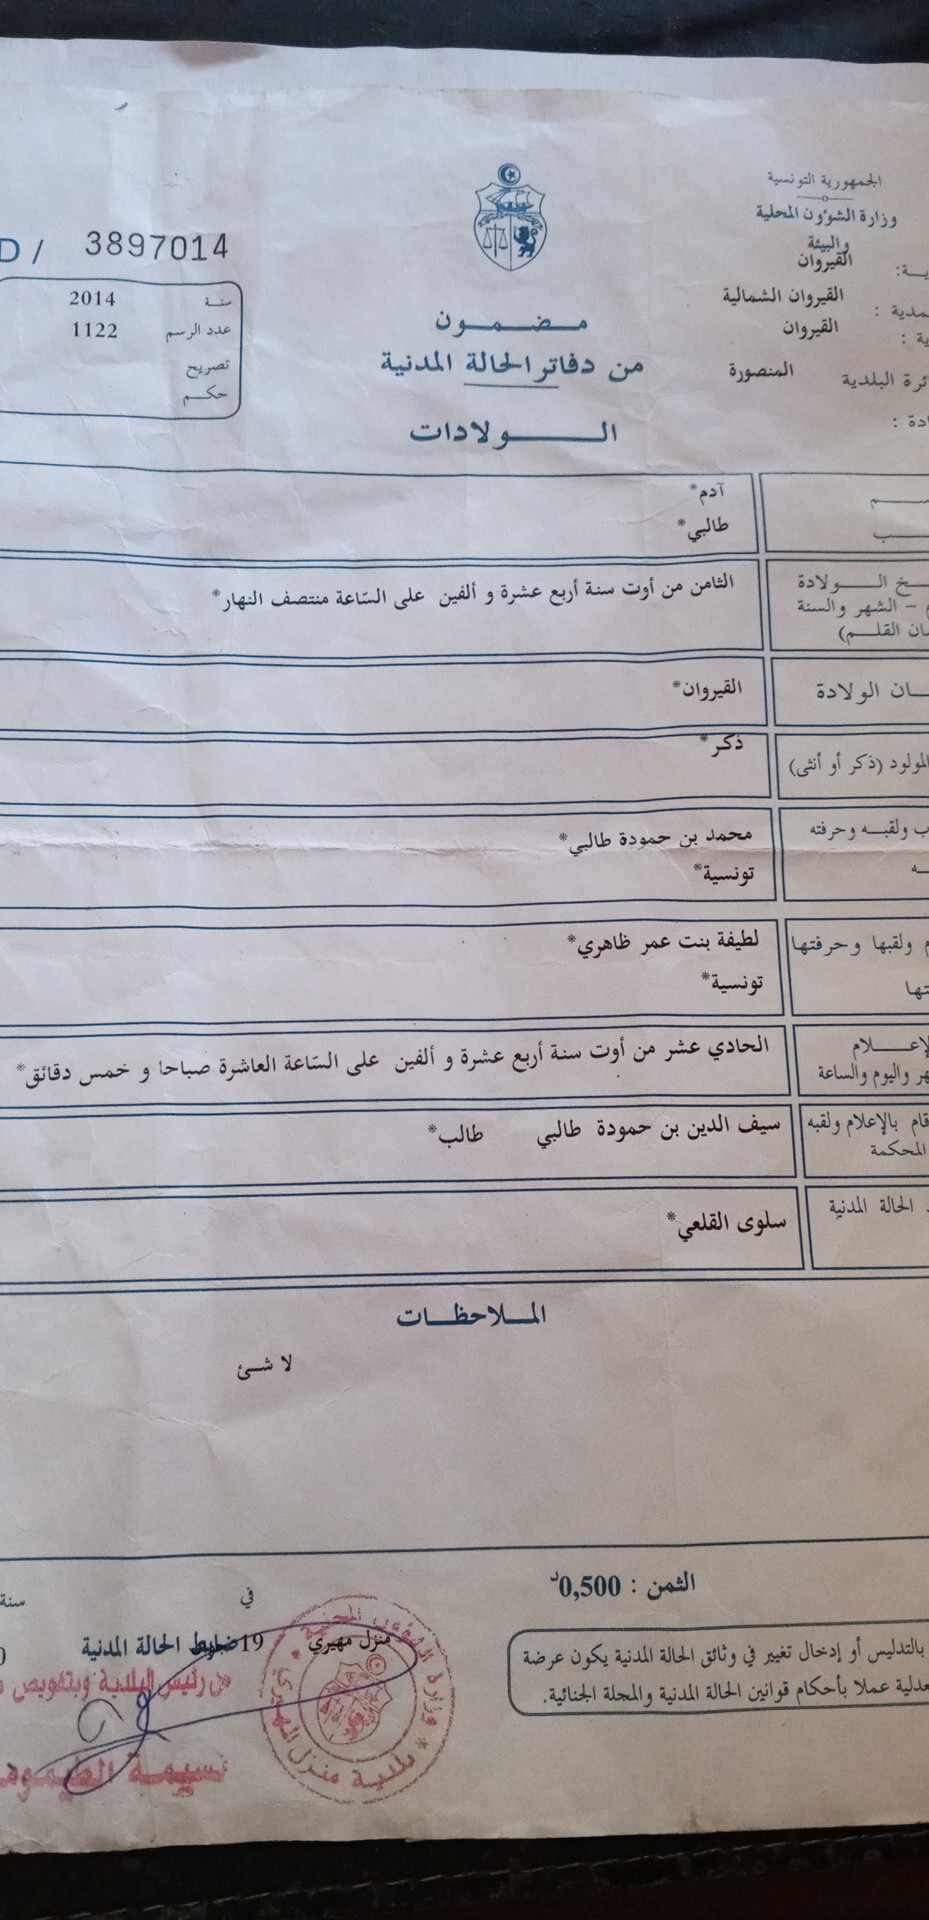 الجمهورية التونسية
وزارة الشؤون المحلية
والبيئة
القيروان
القيروان الشمالية
القيروان
ئرة البلدية المنصورة
D / 3897014
سنة 2014
عدد الرسم 1122
تصريح
حكم
مضمون
من دفاتر الحالة المدنية
الولادات
آدم*
طالبي*
خ الولادة
م - الشهر والسنة
ان القلم)
الثامن من أوت سنة أربع عشرة و ألفين على السّاعة منتصف النهار*
ان الولادة
القيروان*
المولود (ذكر أو أنثى)
ذكر*
ب ولقبه وحرفته
محمد بن حمودة طالبي*
تونسية*
م ولقبها وحرفتها
لطيفة بنت عمر ظاهري*
تها
تونسية*
الإعلام
هر واليوم والساعة
الحادي عشر من أوت سنة أربع عشرة و ألفين على السّاعة العاشرة صباحا و خمس دقائق*
قام بالإعلام ولقبه
المحكمة
سيف الدين بن حمودة طالبي طالب*
الحالة المدنية
سلوى القلعي*
الملاحظات
لا شئ
الثمن : 0,500د
في
سنة
منزل مهيري 19
ضابط الحالة المدنية
عن رئيس البلدية وبتفويض
نسيمة
وزارة الشؤون المحلية
بلدية منزل المهيري
بالتدليس أو إدخال تغيير في وثائق الحالة المدنية يكون عرضة
عدلية عملا بأحكام قوانين الحالة المدنية والمجلة الجنائية.